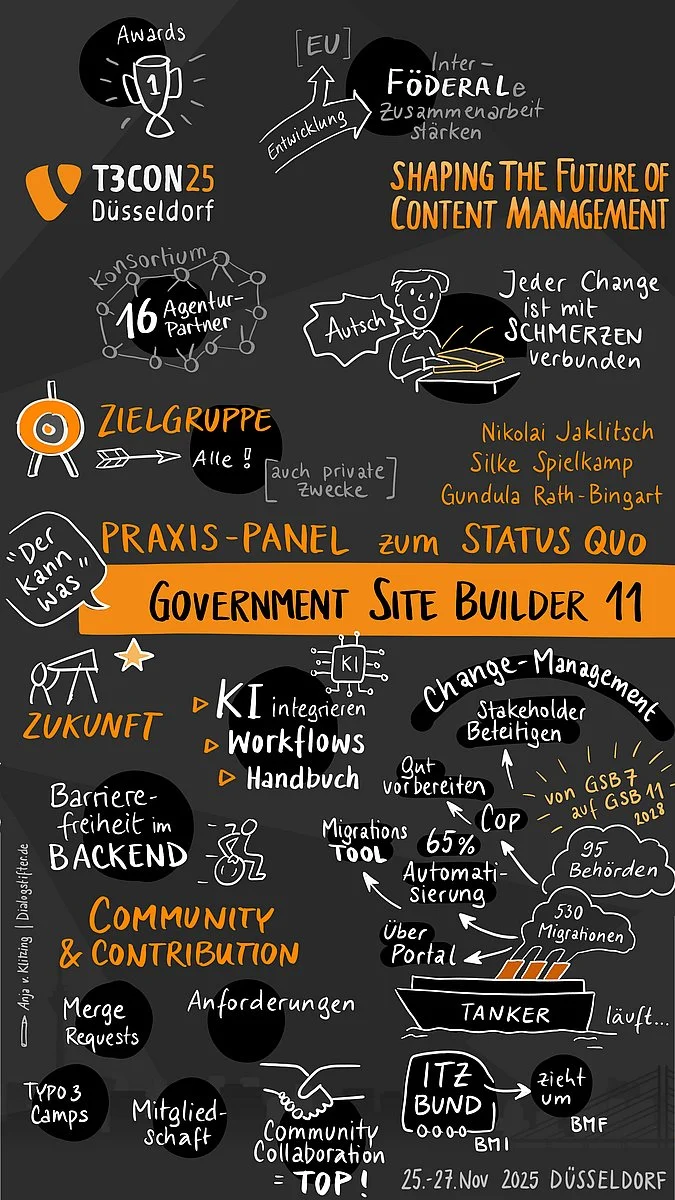 Awards
1
[EU]
Entwicklung
Inter-
FÖDERALe
Zusammenarbeit
stärken
T3CON25
Düsseldorf
SHAPING THE FUTURE OF
CONTENT MANAGEMENT
Konsortium
16 Agentur-
Partner
Autsch
Jeder Change
ist mit
SCHMERZEN
verbunden
ZIELGRUPPE
Alle!
[auch private
Zwecke]
Nikolai Jaklitsch
Silke Spielkamp
Gundula Rath-Bingart
"Der
kann
was"
PRAXIS-PANEL zum STATUS QUO
GOVERNMENT SITE BUILDER 11
ZUKUNFT
KI
KI integrieren
Workflows
Handbuch
Barriere-
freiheit im
BACKEND
Change-Management
Stakeholder
Beteiligen
Gut
vorbereiten
CoP
von GSB7
auf GSB 11
2028
Migrations
TOOL
65%
Automati-
sierung
95
Behörden
530
Migrationen
Über
Portal
TANKER
läuft...
COMMUNITY
& CONTRIBUTION
Merge
Requests
Anforderungen
TYPO3
Camps
Mitglied-
schaft
Community
Collaboration
= TOP!
ITZ
BUND
BMI
zieht
um
BMF
Anja v. Klitzing | Dialogstifter.de
25.-27.Nov 2025 DÜSSELDORF